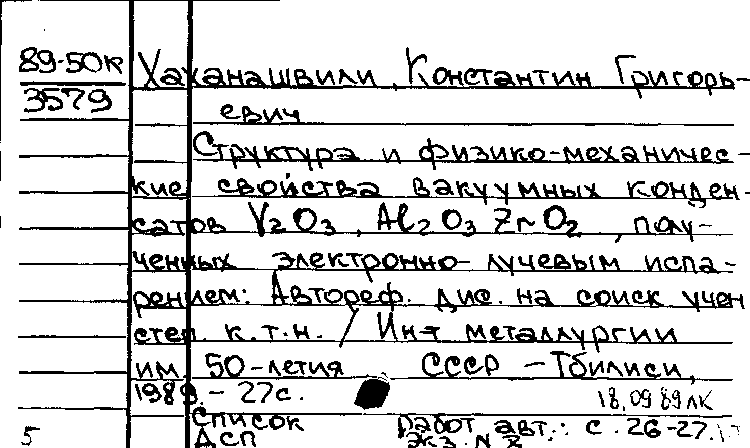 89-50к Хаханашвили, Константин Григорь-
3579
евич
Структура и физико-механичес-
кие свойства вакуумных конден-
сатов Y2O3, Al2O3 ZrO2, полу-
ченных электронно-лучевым испа-
рением: Автореф. дис. на соиск учен
степ. к.т.н. / Ин-т металлургии
им. 50-летия СССР - Тбилиси,
1989. - 27с.
18.09 89 ЛК
Список работ авт.: с. 26-27
5 ДСП Экз. N